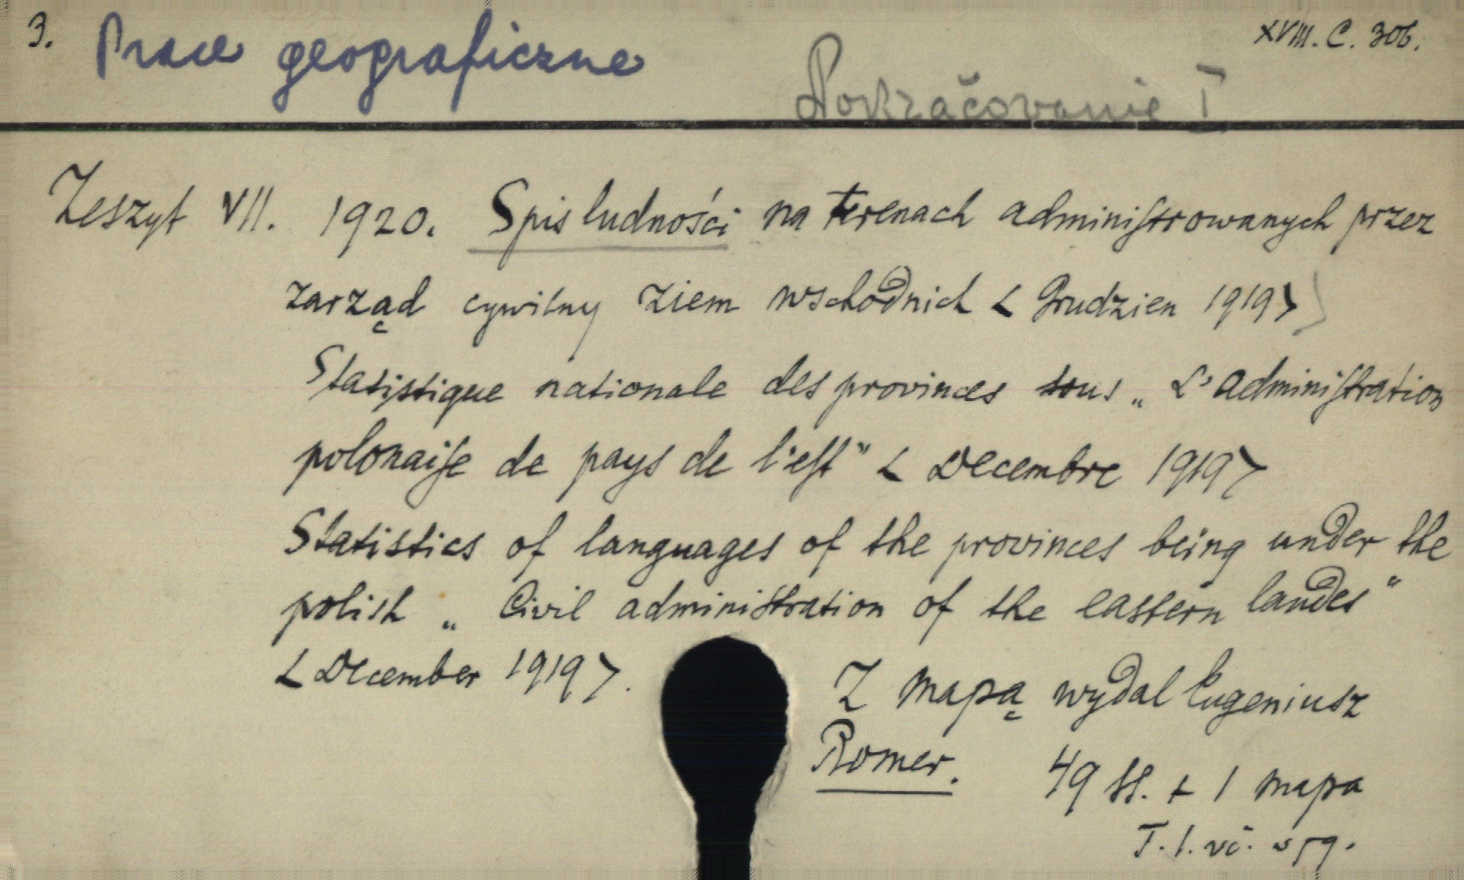 3. Prace geograficzne XVIII. C. 306.
Pokračovanie I
Zeszyt VII. 1920. Spis ludności na terenach administrowanych przez
zarząd cywilny ziem wschodnich < Grudzien 1919 >
Statistique nationale des provinces sous „ L'administration
polonaise de pays de l'est" < Decembre 1919 >
Statistics of languages of the provinces being under the
polish „ Civil administration of the eastern landes"
< December 1919 >.
Z mapą wydal Eugeniusz
Romer. 49 ss. + 1 mapa
T. l. vč.